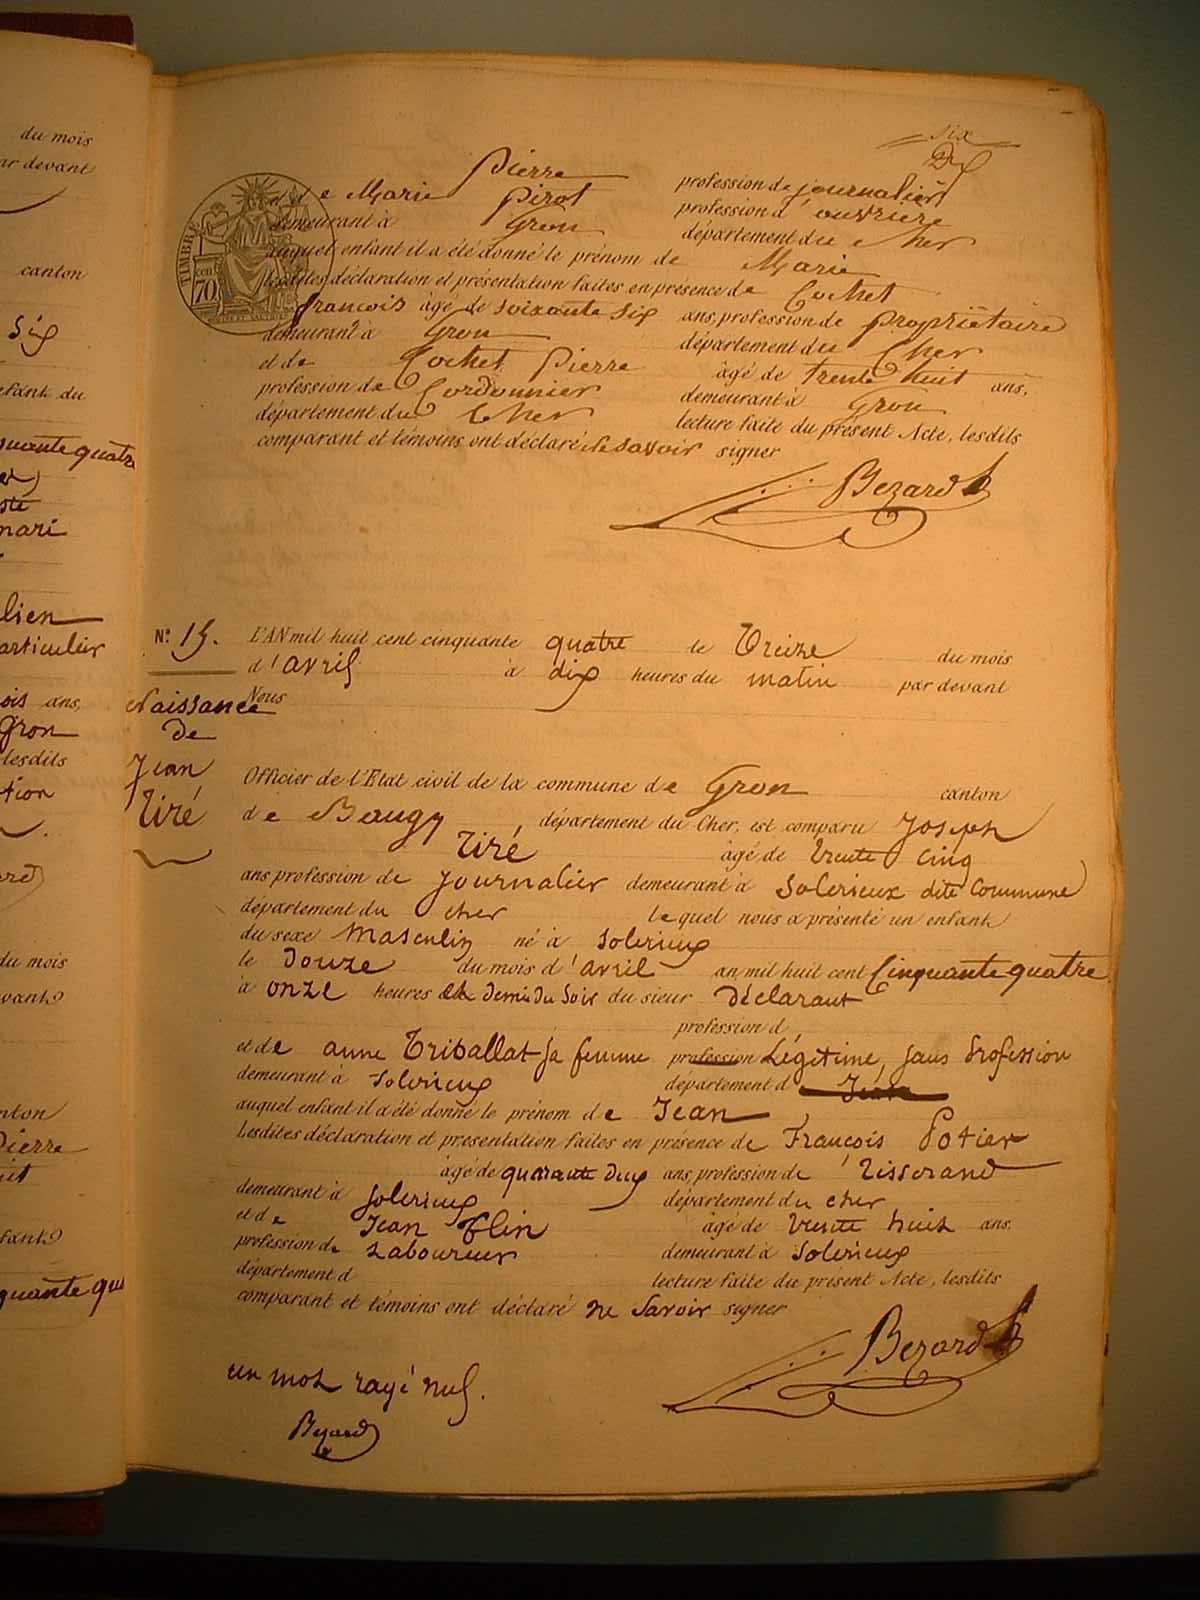 six
Pierre profession de journalier
et de Marie Pirot profession d'ouvriere
demeurant à Gron département du Cher
auquel enfant il a été donné le prénom de Marie
lesdites déclaration et présentation faites en présence de Cochet
francois âgé de soixante six ans, profession de propriétaire
demeurant à Gron département du Cher
et de Cochet Pierre âgé de trente huit ans,
profession de Cordonnier demeurant à Gron
département du Cher lecture faite du présent Acte, lesdits
comparant et témoins ont déclaré ne savoir signer
Bezard
TIMBRE
70 cent
N° 15.
L'AN mil huit cent cinquante quatre le Treize du mois
d'avril à dix heures du matin par devant
Nous
Naissance
De
Jean
Tiré
Officier de l'Etat civil de la commune de Gron canton
de Baugy département du Cher, est comparu Joseph
Tiré âgé de trente cinq
ans profession de journalier demeurant à Solerieux dite Commune
département du cher lequel nous a présenté un enfant
du sexe Masculin né à Solerieux
le Douze du mois d'avril an mil huit cent Cinquante quatre
à onze heures et demi du Soir du sieur Déclarant
profession d
et de anne Triballat sa femme profession Légitime, sans Profession
demeurant à Solerieux département d Jean
auquel enfant il a été donné le prénom de Jean
Lesdites déclaration et présentation faites en présence de François Potier
âgé de quarante deux ans, profession de Tisserand
demeurant à Solerieux département du cher
et de Jean Blin âgé de trente huit ans.
profession de Laboureur demeurant à Solerieux
département d lecture faite du présent Acte, lesdits
comparant et témoins ont déclaré ne Savoir signer
Bezard
un mot rayé nul.
Bezard
du mois
par devant
canton
Six
enfant du
cinquante quatre
mari
articulier
ans,
Gron
lesdits
du mois
Pierre